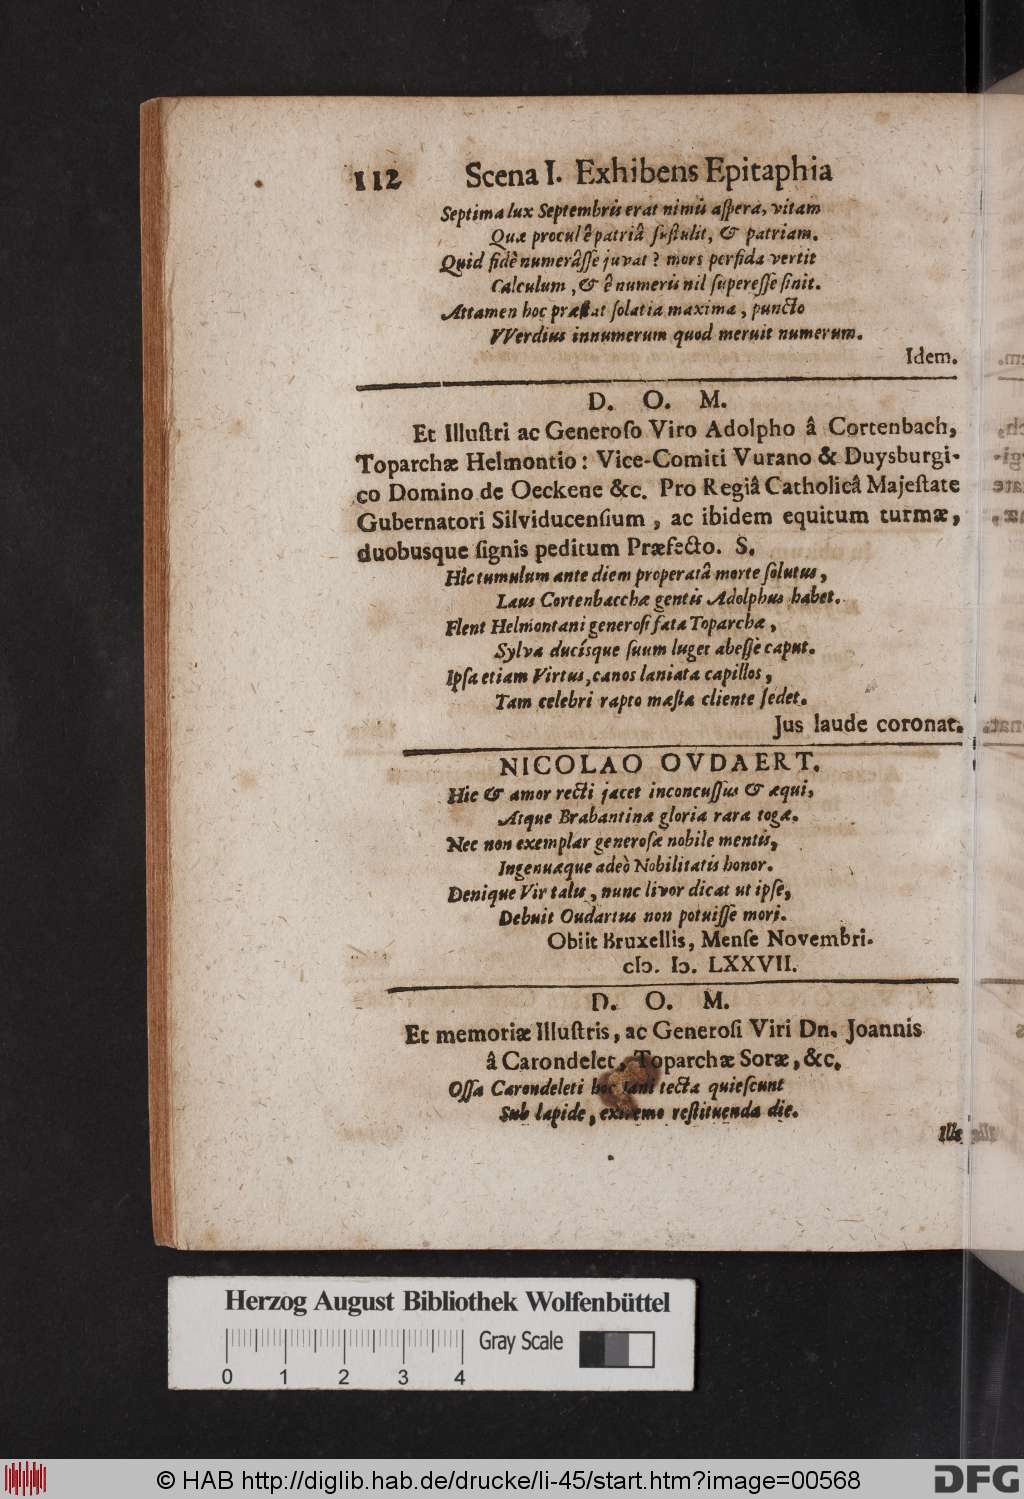 112 Scena I. Exhibens Epitaphia
Septima lux Septembris erat nimis aſpera, vitam
Quæ procul ê patriâ ſuſtulit, & patriam.
Quid fidê numerâſſe juvat? mors perfida vertit
Calculum, & ê numeris nil ſupereſſe ſinit.
Attamen hoc præſtat ſolatia maxima, puncto
VVerdius innumerum quod meruit numerum.
Idem.
D. O. M.
Et Illuſtri ac Generoſo Viro Adolpho â Cortenbach,
Toparchæ Helmontio: Vice-Comiti Vurano & Duysburgi-
co Domino de Oeckene &c. Pro Regiâ Catholicâ Majeſtate
Gubernatori Silviducenſium, ac ibidem equitum turmæ,
duobusque ſignis peditum Præfecto. S.
Hîc tumulum ante diem properatâ morte ſolutus,
Laus Cortenbacchæ gentis Adolphus habet.
Flent Helmontani generoſi fata Toparchæ,
Sylva ducísque ſuum luget abeſſe caput.
Ipſa etiam Virtus, canos laniata capillos,
Tam celebri rapto mæſta cliente ſedet.
Jus laude coronat.
NICOLAO OVDAERT.
Hic & amor recti jacet inconcuſſus & æqui,
Atque Brabantinæ gloria rara togæ.
Nec non exemplar generoſæ nobile mentis,
Ingenuæque adeò Nobilitatis honor.
Denique Vir talis, nunc livor dicat ut ipſe,
Debuit Oudartus non potuiſſe mori.
Obiit Bruxellis, Menſe Novembri.
cIɔ. Iɔ. LXXVII.
D. O. M.
Et memoriæ Illuſtris, ac Generoſi Viri Dn. Joannis
â Carondelet, Toparchæ Soræ, &c.
Oſſa Carondeleti hoc tam tecta quieſcunt
Sub lapide, extremo reſtituenda die.
Ille
Herzog August Bibliothek Wolfenbüttel
Gray Scale
0 1 2 3 4
© HAB http://diglib.hab.de/drucke/li-45/start.htm?image=00568
DFG